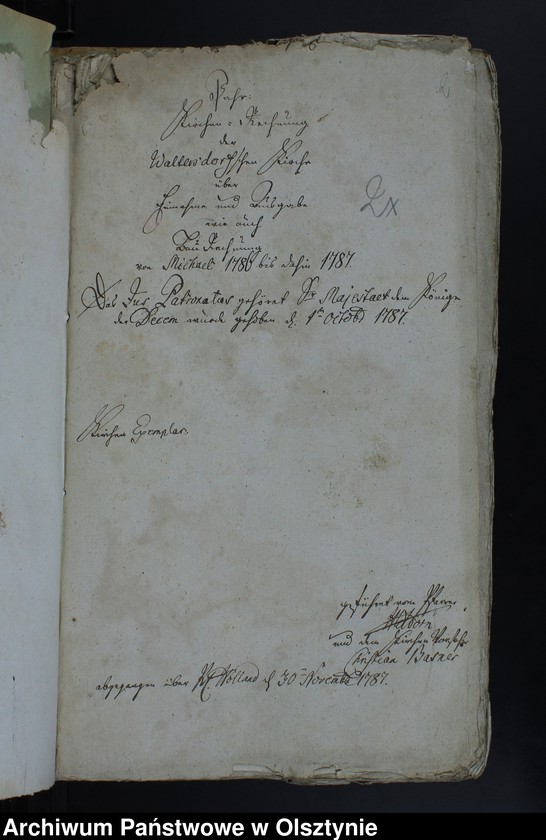 Jahr:
Kirchen-Rechnung
der
Waltersdorffschen Kirche
über
Einnahme und Ausgabe
wie auch
Bau Rechnung
von Michael 1786 bis dahin 1787.
2x
Das Jus Patronatus gehöret Sr Majestaet dem Könige
der Decem wurde gehoben d. 1ten Octobr 1787.
Kirchen Exemplar.
geführet vom Pfarrer
und dem Kirchen Vorsteher
Christian Basner
abgegangen über Pr. Holland d 30 Novembr 1787.
Archiwum Państwowe w Olsztynie